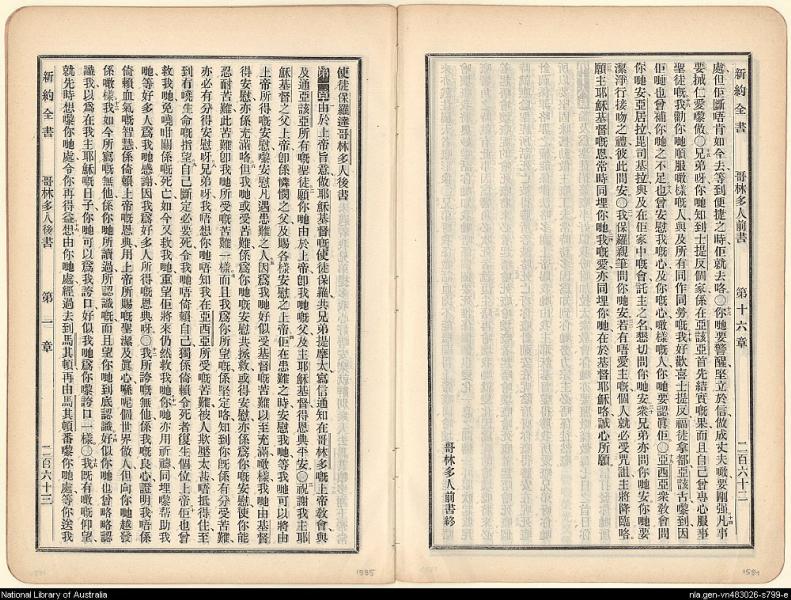 新約全書 哥林多人前書 第十六章 二百六十二
處但佢斷唔肯如今去等到便捷之時佢就去咯○你哋要警醒堅立於信做成丈夫噉要剛强凡事
要㨂仁愛嚟做○兄弟呀你哋知到士提反個家係在亞該亞首先結實嘅果而且自己曾專心服事
聖徒嘅我勸你哋順服噉樣嘅人與及所有同作同勞嘅我好歡喜士提反福徒拿都亞該古嚟到因
佢哋也曾補你哋之不足也曾安慰我嘅心及你嘅心噉樣嘅人你哋要認眞佢○亞西亞衆敎會問
你哋安亞居拉毘司基拉與及在佢家中嘅會託主之名懇切問你哋安衆兄弟亦問你哋安你哋要
潔淨行接吻之禮彼此問安○我保羅親筆問你哋安若有唔愛主嘅個人就必受咒詛主將降臨咯
願主耶穌基督嘅恩常時同埋你哋我嘅愛亦同埋你哋在於基督耶穌咯誠心所願
哥林多人前書終
1584
使徒保羅達哥林多人後書
第一章由於上帝旨意做耶穌基督嘅使徒保羅共兄弟提摩太寫信通知在哥林多嘅上帝敎會與
及通亞該亞所有嘅聖徒願你哋由於上帝卽我哋嘅父及主耶穌基督得恩典平安○祝謝我主耶
穌基督之父上帝卽係憐憫之父及賜各樣安慰之上帝佢在患難之時安慰我哋等我哋可以將由
上帝所得嘅安慰嚟安慰凡遇患難之人因爲我哋好似受基督嘅苦難以至充滿噉樣我哋由基督
得安慰亦係充滿咯但我哋或受苦難係爲你哋嘅安慰共拯救或得安慰亦係爲你嘅安慰使你能
忍耐苦難此苦難卽我哋所受嘅苦難一樣而且我爲你所望嘅係堅定咯知到你旣係有分受苦難
亦必有分得安慰呀兄弟呀我唔想你哋唔知我在亞西亞所受嘅苦難被人欺壓太甚唔抵得住至
到有嘵生命嘅指望自己斷定必要死令我哋唔倚賴自己獨係倚賴令死者復生個位上帝佢也曾
救我哋免嘵咁關係嘅死亡如今又救我哋重望佢將來仍然救我哋你哋亦用祈禱同埋嚟幫助我
哋等好多人爲我哋感謝因我爲好多人所得嘅恩典呀○我所誇嘅無他係我嘅良心證明我唔係
倚賴血氣嘅智慧係倚賴上帝嘅恩典用上帝所賜嘅聖潔及眞心喺呢個世界做人但向你哋越發
係噉樣我如今所寫嘅無他係你哋所讀過所認識嘅而且望你哋到底認識好似你哋也曾略略認
識我以爲在我主耶穌嘅日子你哋可以爲我誇口好似我哋爲你嚟誇口一樣○我旣有噉嘅仰望
就先時想嚟你哋處令你再得益想由你哋處經過去到馬其頓再由馬其頓番嚟你哋處等你送我
新約全書 哥林多人後書 第一章 二百六十三
1585
National Library of Australia
nla.gen-vn483026-s799-e